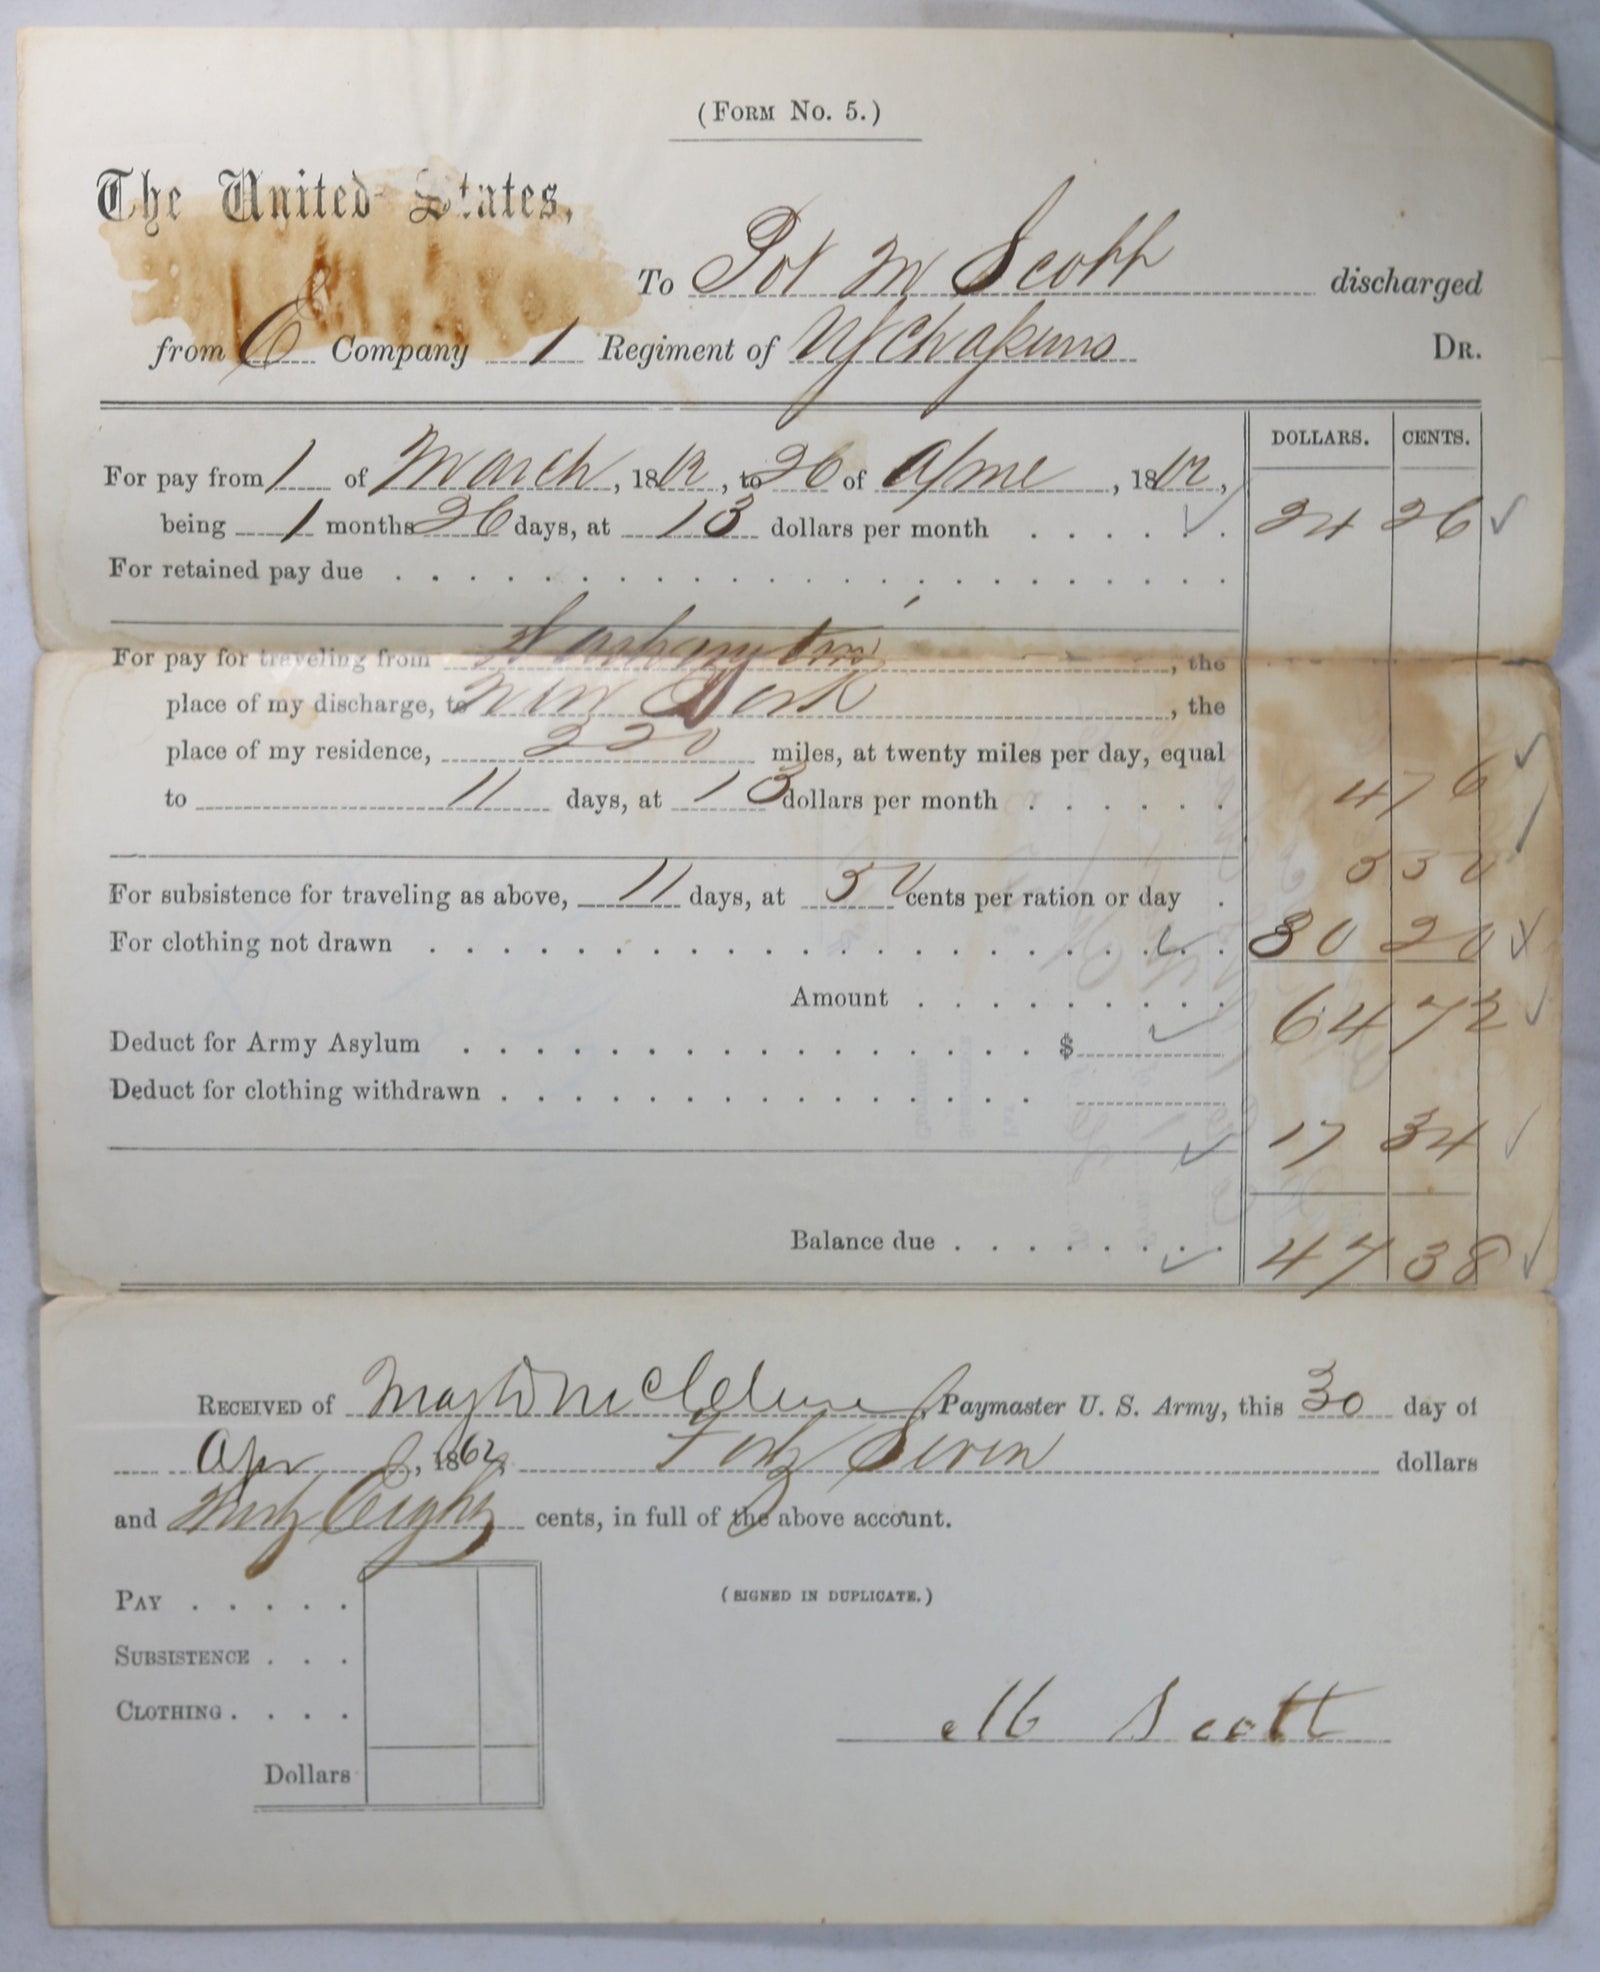 (FORM No. 5.)
The United States,
To Pvt M Scott discharged
from E Company 1 Regiment of DR.
DOLLARS. CENTS.
For pay from 1 of March, 1862, to 26 of April, 1862,
being 1 months 26 days, at 13 dollars per month . . . . . . 24 26
For retained pay due . . . . . . . . . . . . . . . . . . . . . . . .
For pay for traveling from Washington, the
place of my discharge, to New York, the
place of my residence, 220 miles, at twenty miles per day, equal
to 11 days, at 13 dollars per month . . . . . . 4 76
For subsistence for traveling as above, 11 days, at 50 cents per ration or day . 5 50
For clothing not drawn . . . . . . . . . . . . . . . . . . . . . . 30 20
Amount . . . . . . . . . 64 72
Deduct for Army Asylum . . . . . . . . . . . . . . . . $
Deduct for clothing withdrawn . . . . . . . . . . . . . . .
17 34
Balance due . . . . . . . . 47 38
RECEIVED of Maj, Paymaster U. S. Army, this 30 day of
Apr, 1862, Forty Seven dollars
and Thirty Eight cents, in full of the above account.
PAY . . . . .
(SIGNED IN DUPLICATE.)
SUBSISTENCE . . .
CLOTHING . . . .
M Scott
Dollars